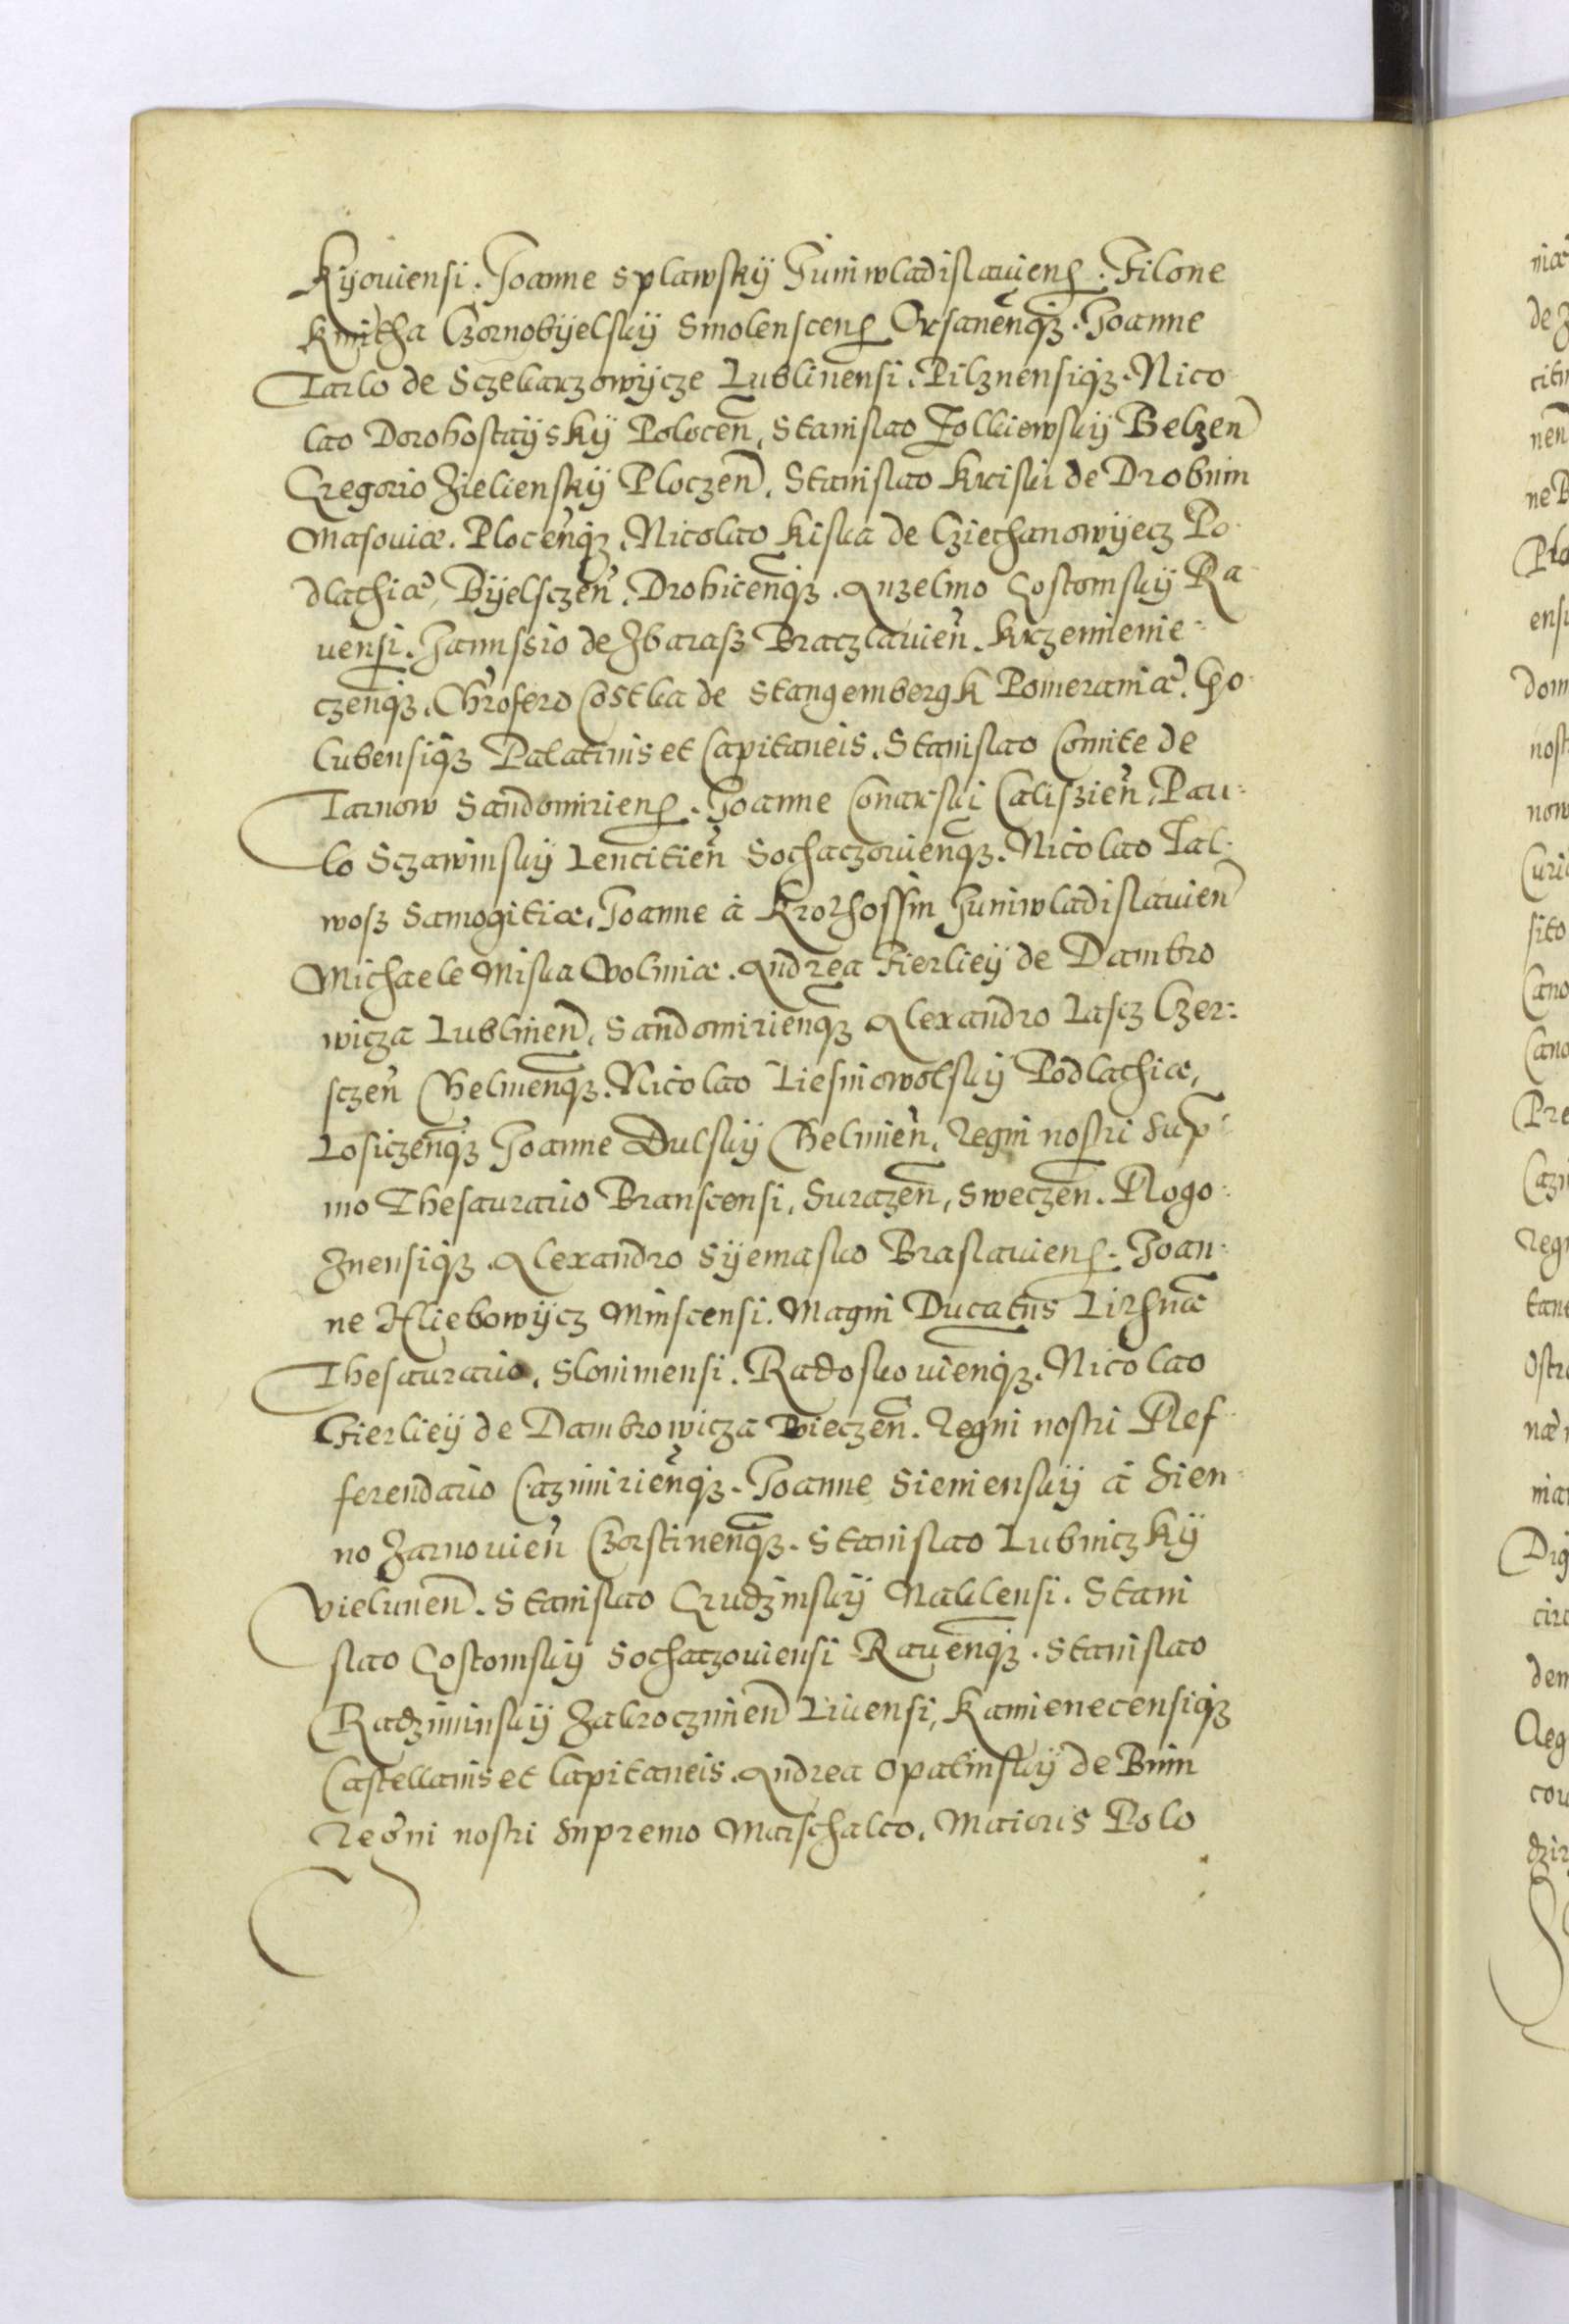 Kyoviensi. Joanne Splawskÿ Juniwladislavien̄. Filone
Kmitha Czornobÿelskÿ Smolenscen̄ Orsanen̄qꝫ. Joanne
Tarlo de Sczekarzowÿcze Lublinensi. Pilznensiqꝫ. Nico
lao Dorohostaÿskÿ Polocen̄, Stanislao Zolkiewskÿ Belzen̄
Gregorio Zielienskÿ Ploczen̄. Stanislao Kriski de Drobnin
Masoviæ. Plocen̄qꝫ, Nicolao Kiska de Cziechanowÿecz Po-
dlachiæ, Bÿelsczen̄. Drohicen̄qꝫ. Anzelmo Gostomskÿ Ra-
vensi. Janussio de Zbarasz Braczlavien̄. Krzemienie-
czen̄qꝫ. Chr̄ofero Costka de Stangembergk Pomeraniæ. Go-
lubensiqꝫ Palatinis et Capitaneis. Stanislao Comite de
Tarnow Sandomirien̄. Joanne Conarski Caliszien̄, Pau-
lo Sczawinskÿ Lencitien̄ Sochaczovien̄qꝫ. Nicolao Tal-
wosz Samogitiæ, Joanne à Krothossin Juniwladislavien̄
Michaele Miska Voliniæ. Andrea Fierlieÿ de Dambro
wicza Lublinen̄, Sandomirien̄qꝫ Alexandro Lascz Czer-
sczen̄ Chelmen̄qꝫ. Nicolao Liesniowolskÿ Podlachiæ,
Losiczen̄qꝫ Joanne Dulskÿ Chelmien̄, Regni nostri Sup-
mo Thesaurario Branscensi, Surazen̄, Sweczen̄. Rogo-
znensiqꝫ. Alexandro Sÿemasko Braslavien̄. Joan-
ne Hliebowÿcz Minscensi. Magni Ducatus Lithu̅æ
Thesaurario. Slonimensi. Radoskovien̄qꝫ. Nicolao
Fierlieÿ de Dambrowicza Bieczen̄. Regni nostri Ref-
ferendario Cazimirien̄qꝫ. Joanne Sienienskÿ à Sien-
no Zarnovien̄ Czorstinen̄qꝫ. Stanislao Lubniczkÿ
Vielunen̄. Stanislao Grudzinskÿ Naklensi. Stani
slao Gostomskÿ Sochaczoviensi Raven̄qꝫ. Stanislao
Radziminskÿ Zakroczimen̄ Livensi, Kamienecensiqꝫ
Castellanis et Capitaneis. Andrea Opalinskÿ de Bnin
Regni nostri Supremo Marschalco. Maioris Polo